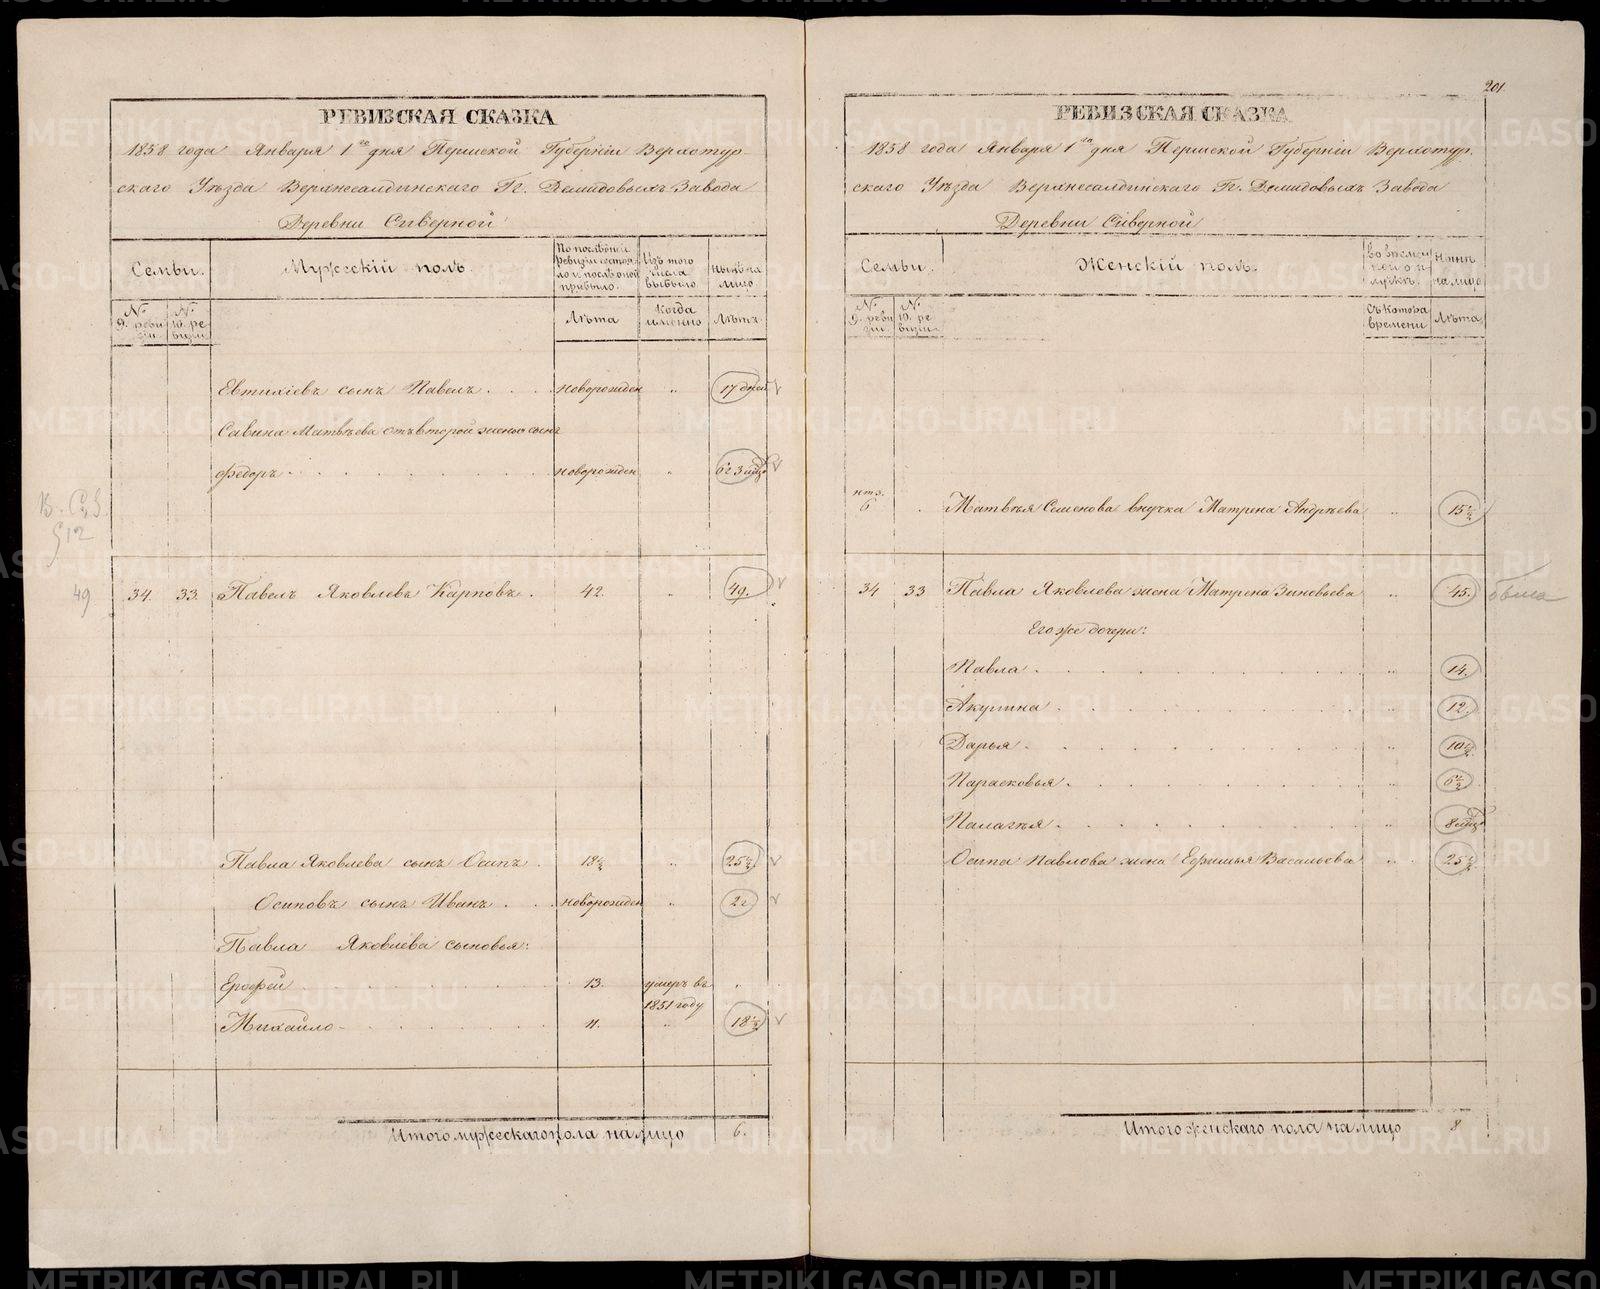 РЕВИЗСКАЯ СКАЗКА
1858 года Января 1го дня Пермской Губерніи Верхотур-
скаго Уѣзда Верхнесалдинскаго Гг. Демидовыхъ Завода
Деревни Сиверной
Семьи.
Мужескій полъ.
По послѣдней ревизіи состоя-ло и послѣ оной прибыло.
Изъ того числа выбыло.
Нынѣ на лицо
№ 9. реви зіи
№ 10. ре визіи
Лѣта
Когда именно
Лѣта
Евтихіевъ сынъ Павелъ . . . новорожден „ 17 дней
Савина Матвѣева отъ второй жены сынъ
Федоръ . . . новорожден „ 6 г 3 мѣс
В. С.
§ 12
49 34. 33. Павелъ Яковлевъ Карповъ . 42. „ 49.
Павла Яковлева сынъ Осипъ . 18½ „ 25½
Осиповъ сынъ Иванъ . . новорожден „ 2 г
Павла Яковлева сыновья:
Ерофей . . . 13. умеръ въ
1851 году
Михайло . . . 11. „ 18½
Итого мужескаго пола на лицо 6.
201
РЕВИЗСКАЯ СКАЗКА
1858 года Января 1го дня Пермской Губерніи Верхотур-
скаго Уѣзда Верхнесалдинскаго Гг. Демидовыхъ Завода
Деревни Сиверной
Семьи.
Женскій полъ.
Во времен ной отлучкѣ.
Нынѣ на лицо
№ 9. реви зіи
№ 10. ре визіи
Съ котора времени
Лѣта
6 Матвѣя Семенова внучка Матрена Андрѣева „ 15½
34 33 Павла Яковлева жена Матрена Зиновьева „ 45.
Его же дочери:
Павла . . . „ 14.
Акулина . . . „ 12.
Дарья . . . „ 10½
Парасковья . . . „ 6½
Палагѣя . . . „ 8 мѣс
Осипа Павлова жена Ефимья Васильева „ 25½
Итого женскаго пола на лицо 8
METRIKI.GASO-URAL.RU